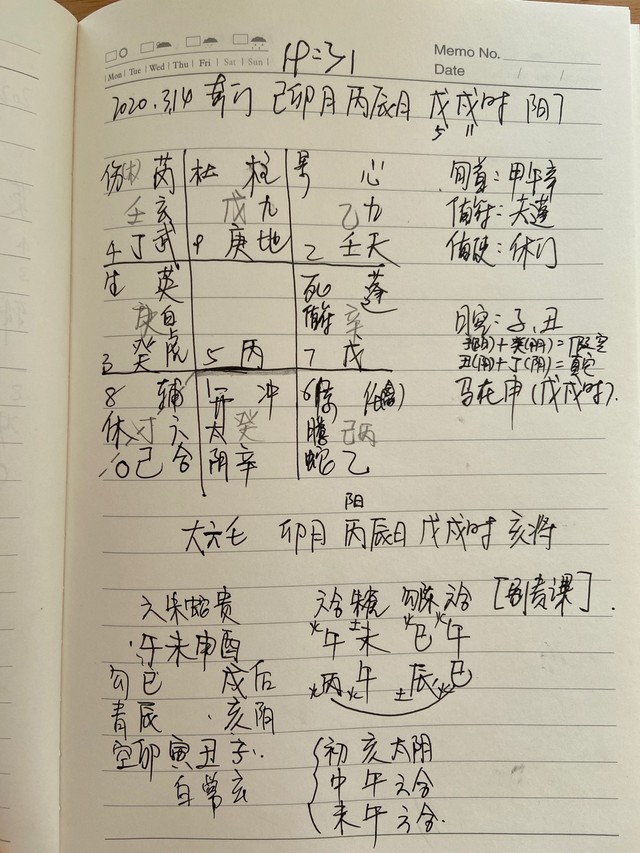 19:31
Memo No.
Mon Tue Wed Thu Fri Sat Sun
Date / /
2020.3.14 奇门 己卯月 丙辰日 戊戌时 阳7
5 11
伤 芮 杜 柱 景 心 旬首:甲午辛
壬 玄 戊 九 乙 九 值符:天蓬
4 丁 武 9 庚 地 2 壬 天 值使:休门
生 英 死 蓬
庚 白 值符 辛 日空:子、丑
3 癸 虎 5 丙 7 戊 子(阳)+癸(阴)=假空
丑(阴)+丁(阴)=真空
8 辅 开 冲 6 惊 任(禽) 马在申(戊戌时).
休 丁 六 太 癸 腾 己丙
己 合 阴 辛 蛇 乙
阳
大六壬 卯月 丙辰日 戊戌时 亥将
六 朱 蛇 贵 六合 朱雀 勾陈 六合 [别责课].
午 未 申 酉 火午 土未 火巳 火午
勾 巳 戌 后 火丙 火午 土辰 火巳
青 辰 亥 阴
空 卯 寅 丑 子 初 亥 太阴
白 常 玄 中 午 六合
末 午 六合.